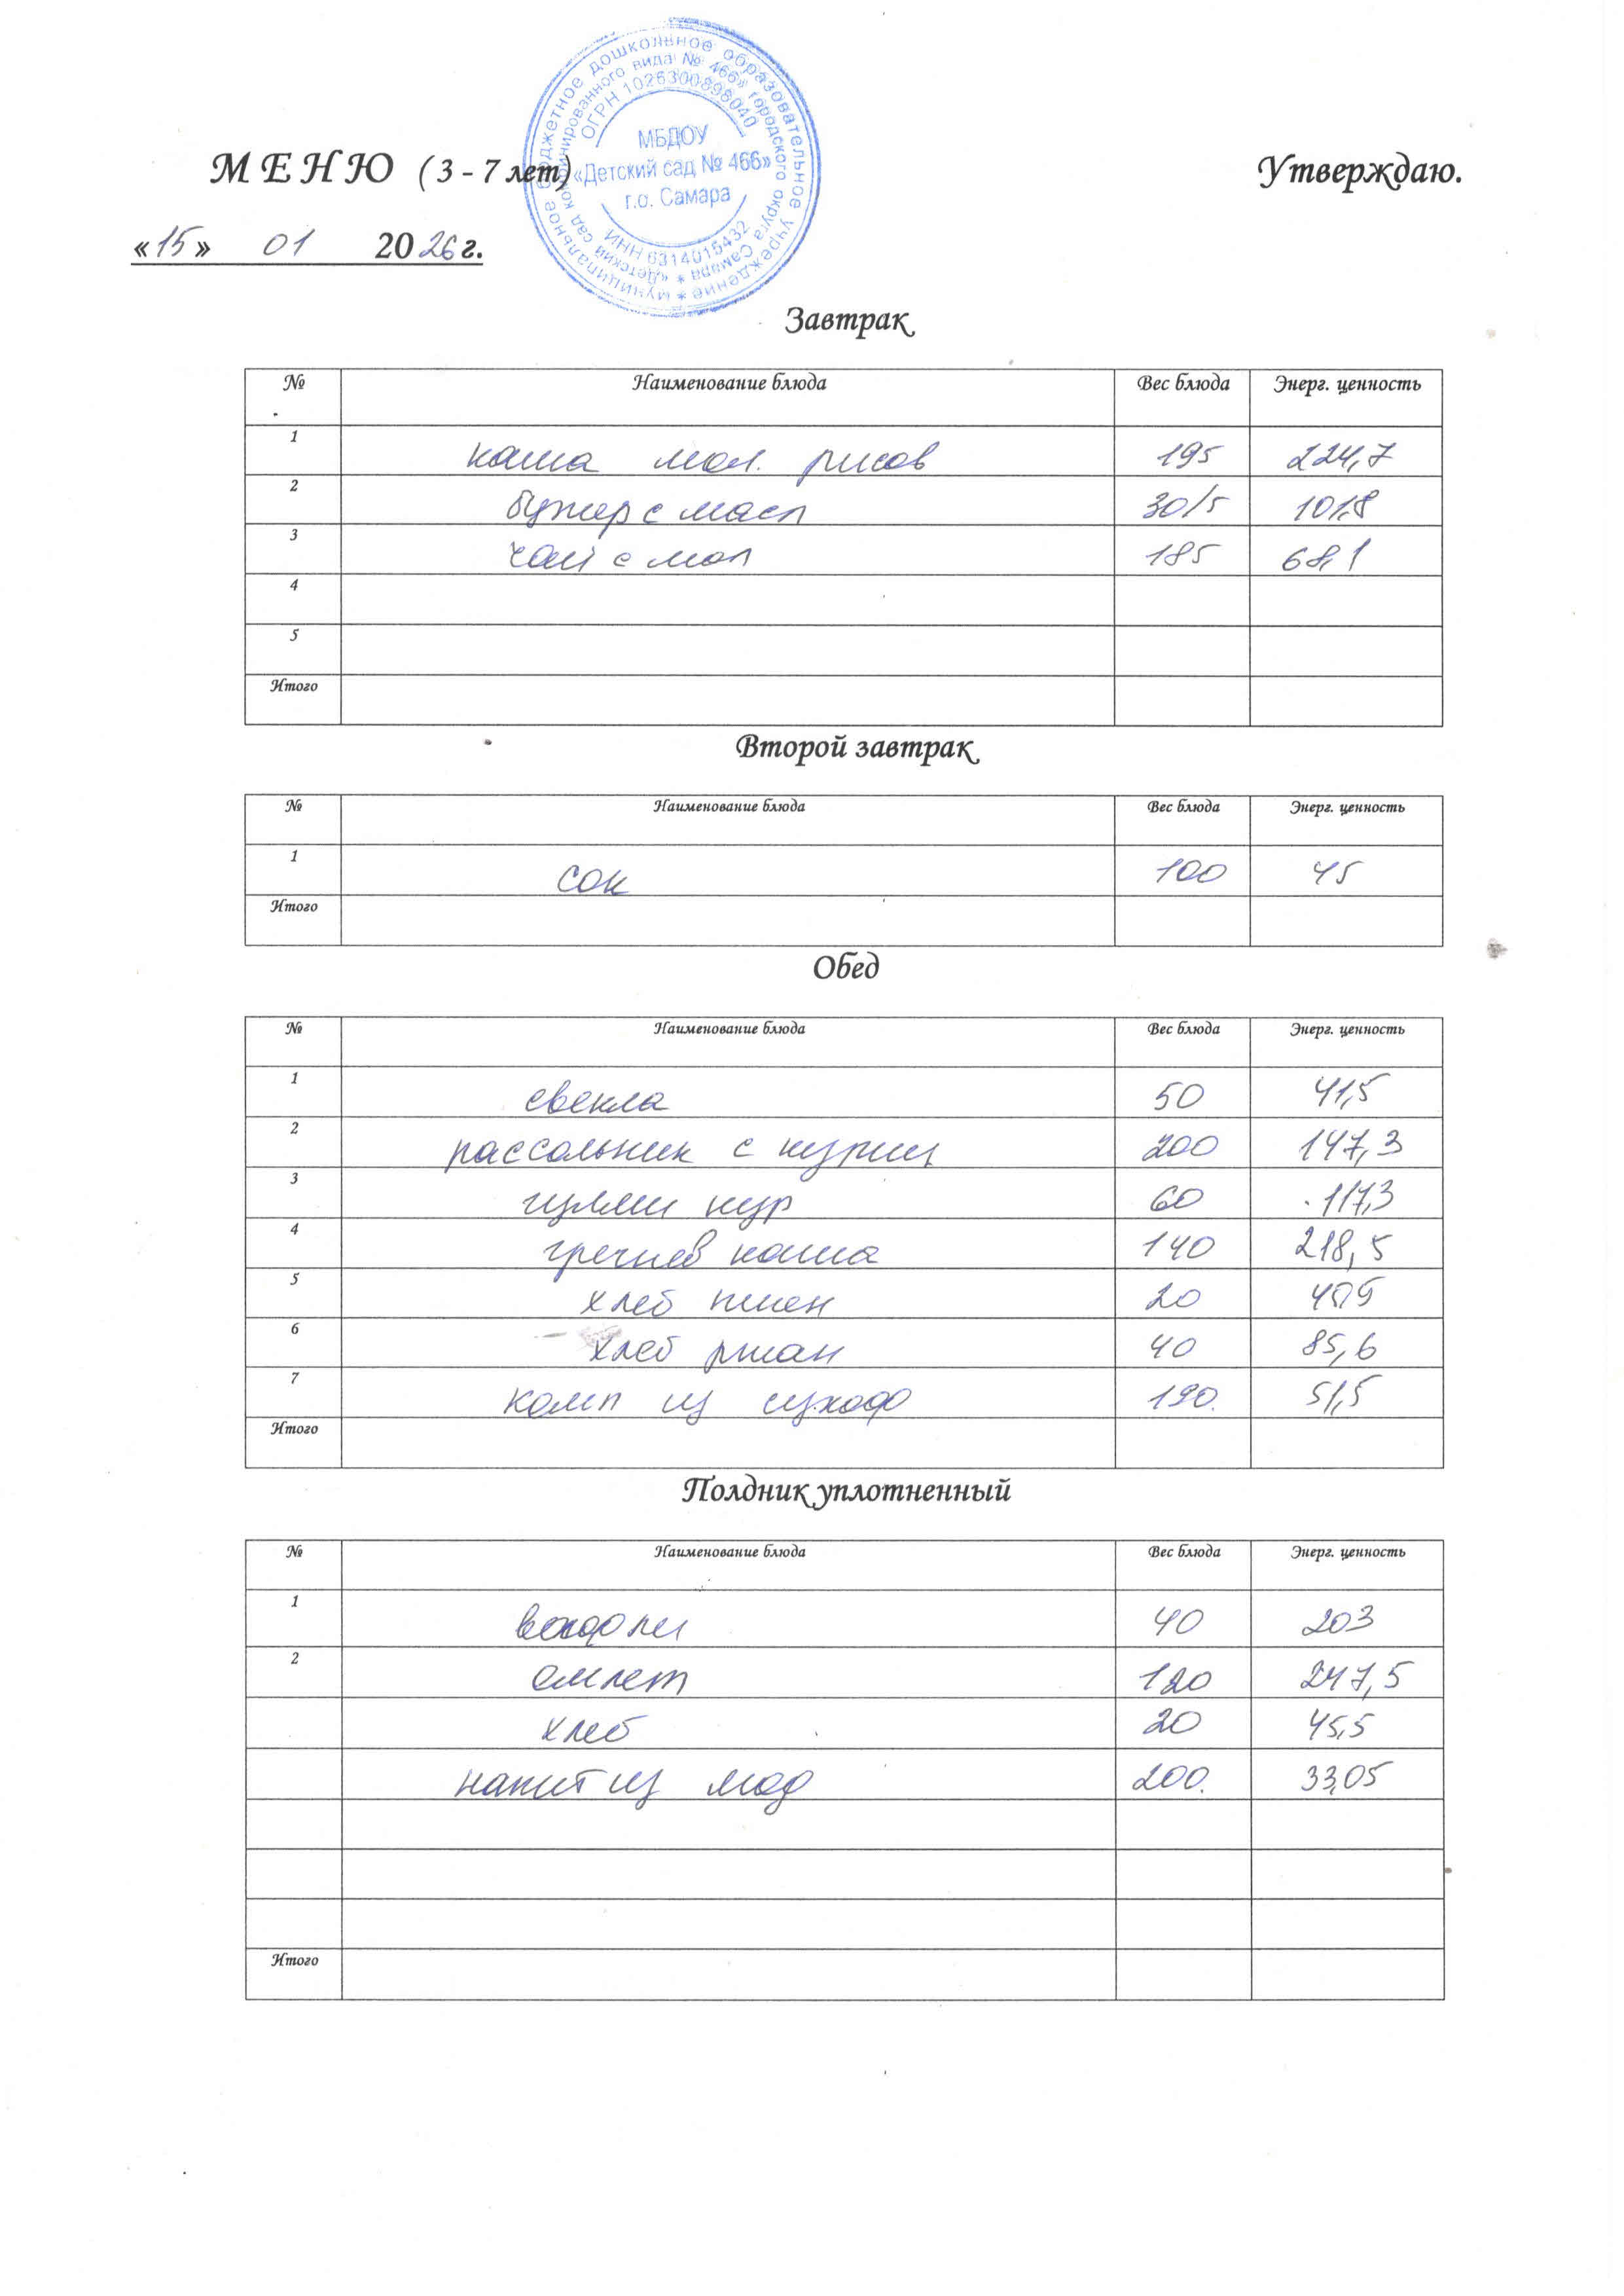 муниципальное бюджетное дошкольное образовательное учреждение *
«Детский сад комбинированного вида № 466» городского округа Самара *
ОГРН 1026300896040
МБДОУ
«Детский сад № 466»
г.о. Самара
ИНН 6314015432
МЕНЮ (3 - 7 лет) Утверждаю.
«15» 01 2026 г.
Завтрак
№ Наименование блюда Вес блюда Энерг. ценность
1 каша мол. рисов 195 224,7
2 бутер с масл 30/5 101,8
3 чай с мол 185 68,1
4
5
Итого
Второй завтрак
№ Наименование блюда Вес блюда Энерг. ценность
1 сок 100 45
Итого
Обед
№ Наименование блюда Вес блюда Энерг. ценность
1 свекла 50 41,5
2 рассольник с куриц 200 147,3
3 гуляш кур 60 117,3
4 гречнев каша 140 218,5
5 хлеб пшен 20
6 хлеб ржан 40 85,6
7 комп из сухоф 190 51,5
Итого
Полдник уплотненный
№ Наименование блюда Вес блюда Энерг. ценность
1 вафли 40 203
2 омлет 120 247,5
хлеб 20 45,5
напит из 200 33,05
Итого